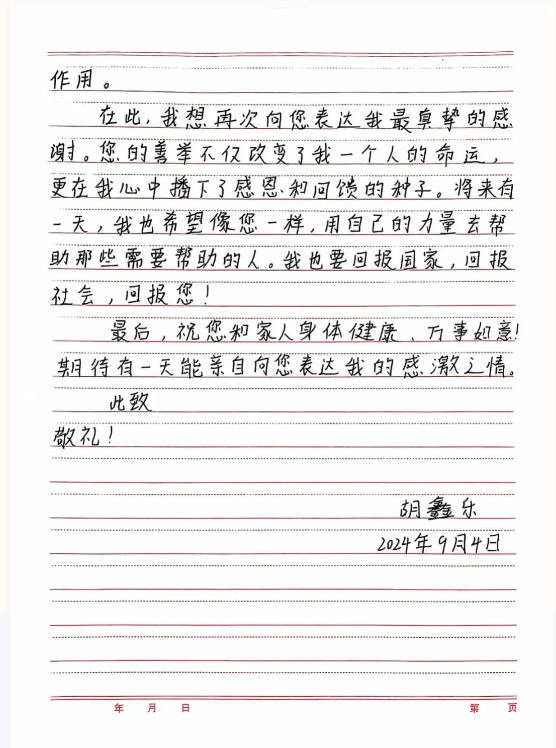 作用。
在此,我想再次向您表达我最真挚的感
谢。您的善举不仅改变了我一个人的命运,
更在我心中播下了感恩和回馈的种子。将来有
一天,我也希望像您一样,用自己的力量去帮
助那些需要帮助的人。我也要回报国家,回报
社会,回报您!
最后,祝您和家人身体健康、万事如意!
期待有一天能亲自向您表达我的感激之情。
此致
敬礼!
胡鑫乐
2024年9月4日
年 月 日 第 页